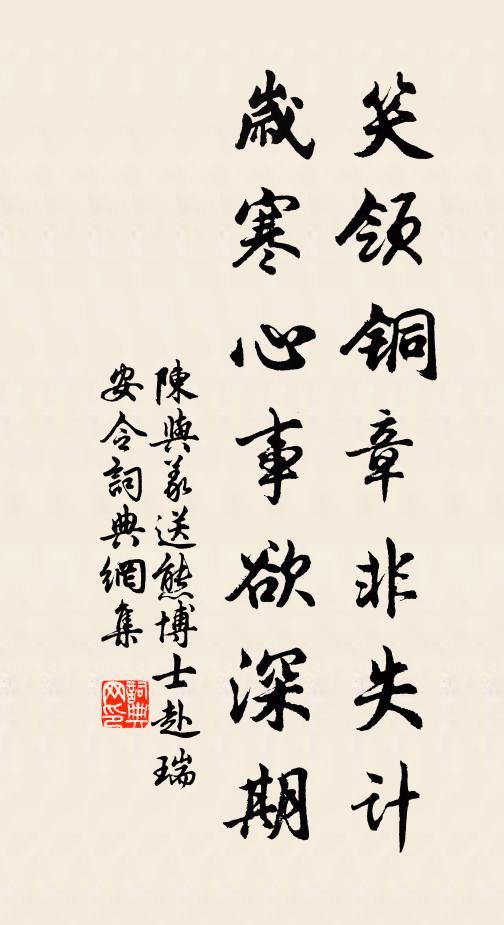 笑领铜章非失计
歲寒心事欲深期
陳與義送熊博士赴瑞
安令詞典網集
詞典
网印